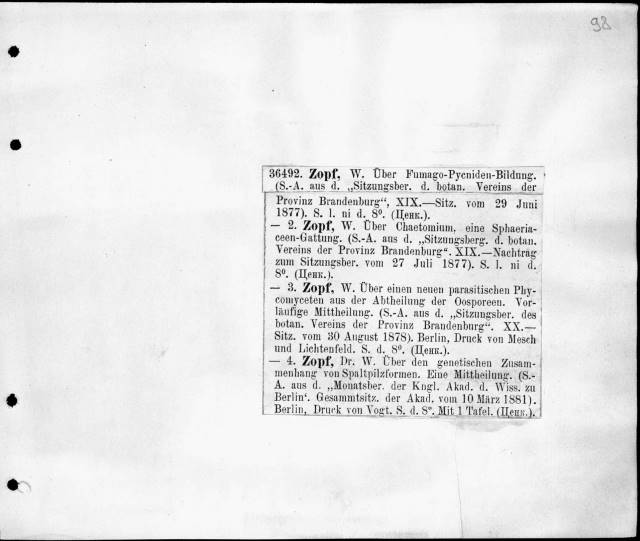 98
36492. Zopf, W. Über Fumago-Pycniden-Bildung.
(S.-A. aus d. „Sitzungsber. d. botan. Vereins der
Provinz Brandenburg“, XIX.—Sitz. vom 29 Juni
1877). S. l. ni d. 8⁰. (Ценк.).
— 2. Zopf, W. Über Chaetomium, eine Sphaeria-
ceen-Gattung. (S.-A. aus d. „Sitzungsberg. d. botan.
Vereins der Provinz Brandenburg“. XIX.—Nachtrag
zum Sitzungsber. vom 27 Juli 1877). S. l. ni d.
8⁰. (Ценк.).
— 3. Zopf, W. Über einen neuen parasitischen Phy-
comyceten aus der Abtheilung der Oosporeen. Vor-
läufige Mittheilung. (S.-A. aus d. „Sitzungsber. des
botan. Vereins der Provinz Brandenburg“. XX.—
Sitz. vom 30 August 1878). Berlin, Druck von Mesch
und Lichtenfeld. S. d. 8⁰. (Ценк.).
— 4. Zopf, Dr. W. Über den genetischen Zusam-
menhang von Spaltpilzformen. Eine Mittheilung. (S.-
A. aus d. „Monatsber. der Kngl. Akad. d. Wiss. zu
Berlin‘. Gesammtsitz. der Akad. vom 10 März 1881).
Berlin, Druck von Vogt. S. d. 8⁰. Mit 1 Tafel. (Ценк.).